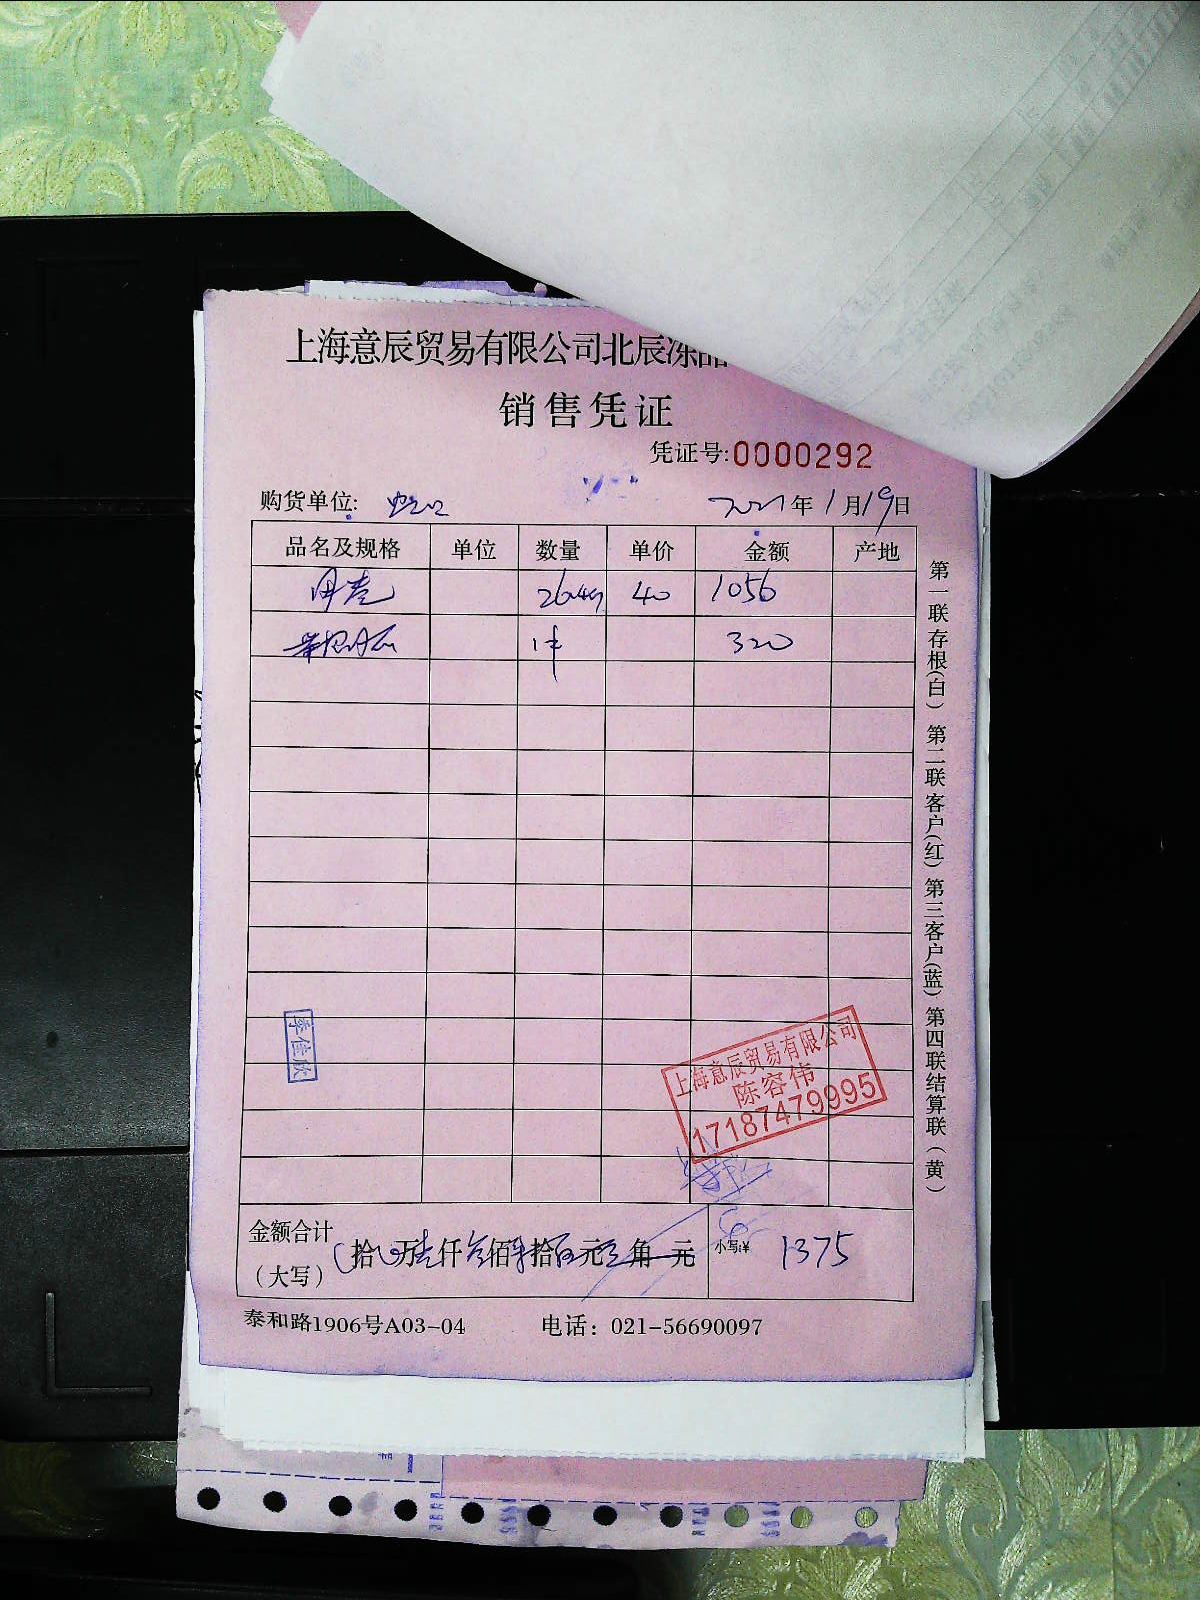 上海意辰贸易有限公司北辰冻品
销售凭证
凭证号:0000292
购货单位: 虹口 2021年1月19日
品名及规格 单位 数量 单价 金额 产地
26.4kg 40 1056
1件 320
季佳欣
上海意辰贸易有限公司
陈容伟
17187479995
金额合计
(大写) 拾 万壹仟叁佰柒拾伍元 角 元 小写:¥ 1375
泰和路1906号A03-04 电话：021-56690097
第一联存根(白) 第二联客户(红) 第三客户(蓝) 第四联结算联(黄)